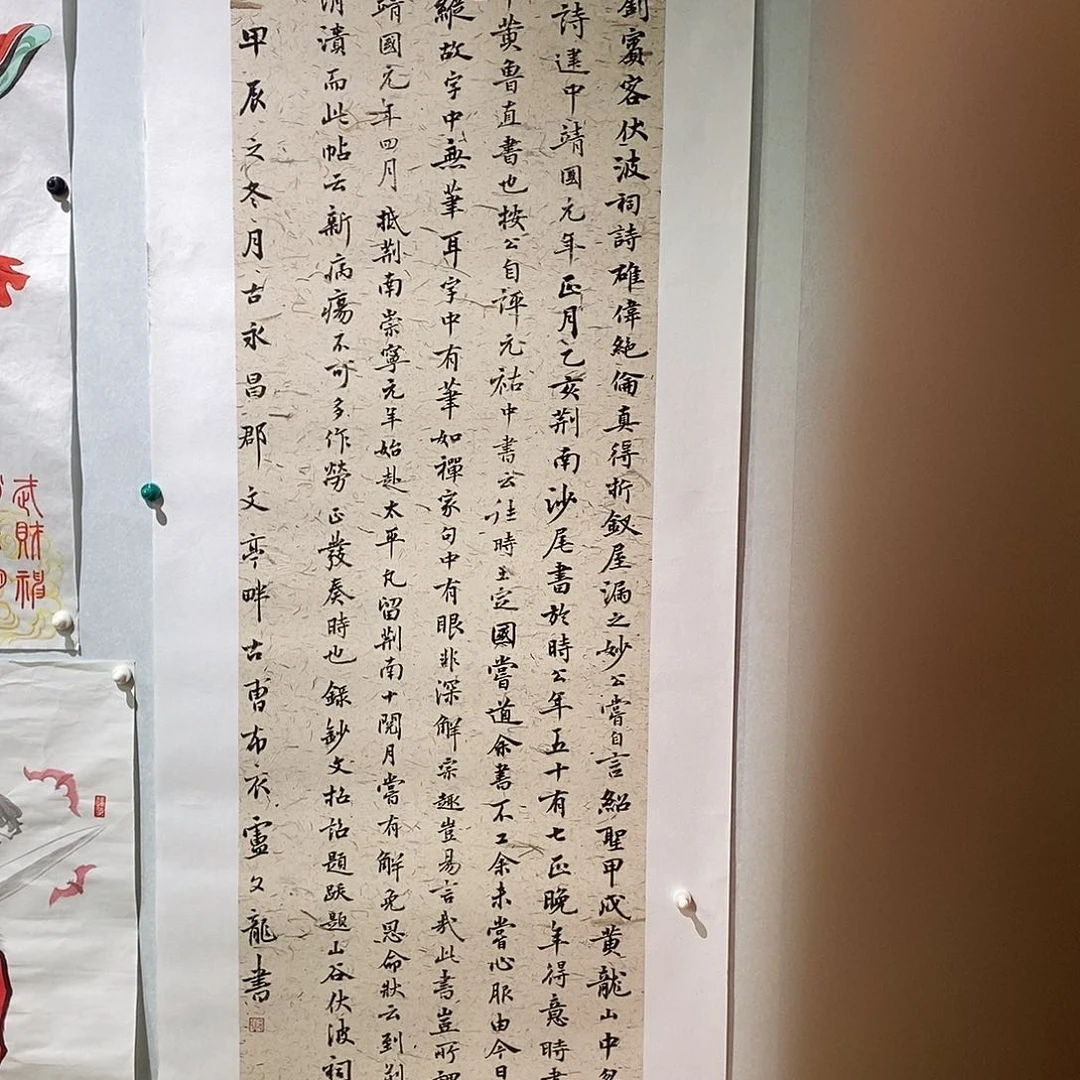 劉賓客伏波祠詩雄偉絕倫真得折釵屋漏之妙公嘗自言紹聖甲戌黃龍山中忽
詩建中靖國元年正月乙亥荆南沙尾書於時公年五十有七正晚年得意時書
黃魯直書也按公自評元祐中書云往時王定國嘗道余書不工余未嘗心服由今日
縱故字中無筆耳字中有筆如禪家句中有眼非深解宗趣豈易言哉此書豈所謂
靖國元年四月抵荆南崇寧元年始赴太平凡留荆南十閱月嘗有解免恩命狀云到荆
漬而此帖云新病瘍不可多作勞正發奏時也錄鈔文招詁題跋題山谷伏波祠
甲辰之冬月古永昌郡文亭畔古曹布衣盧文龍書
武財神